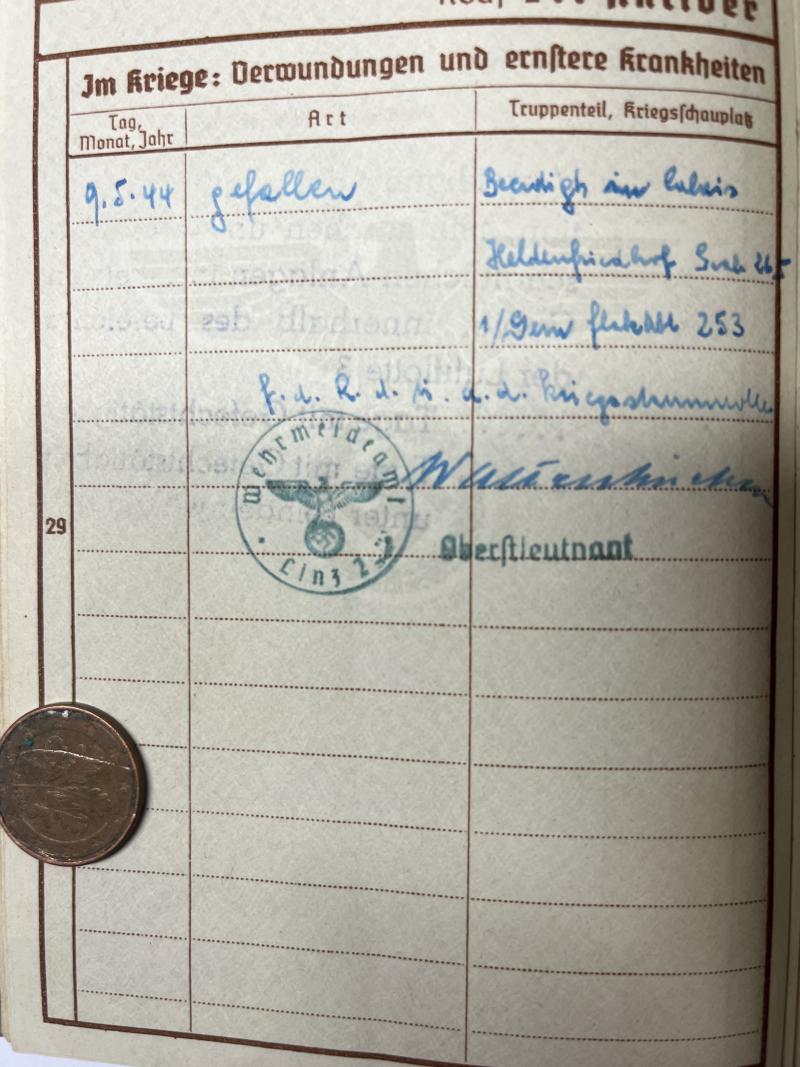 Im Kriege: Verwundungen und ernstere Krankheiten
Tag, Monat, Jahr
Art
Truppenteil, Kriegsschauplatz
9.5.44 gefallen Beerdigt in Calais
Heldenfriedhof Grab 265
1/Gem Flakabt 253
f. d. R. d. ü. a. d. Kriegsstammrolle
Wehrmeldeamt
Linz 2
Oberstleutnant
29